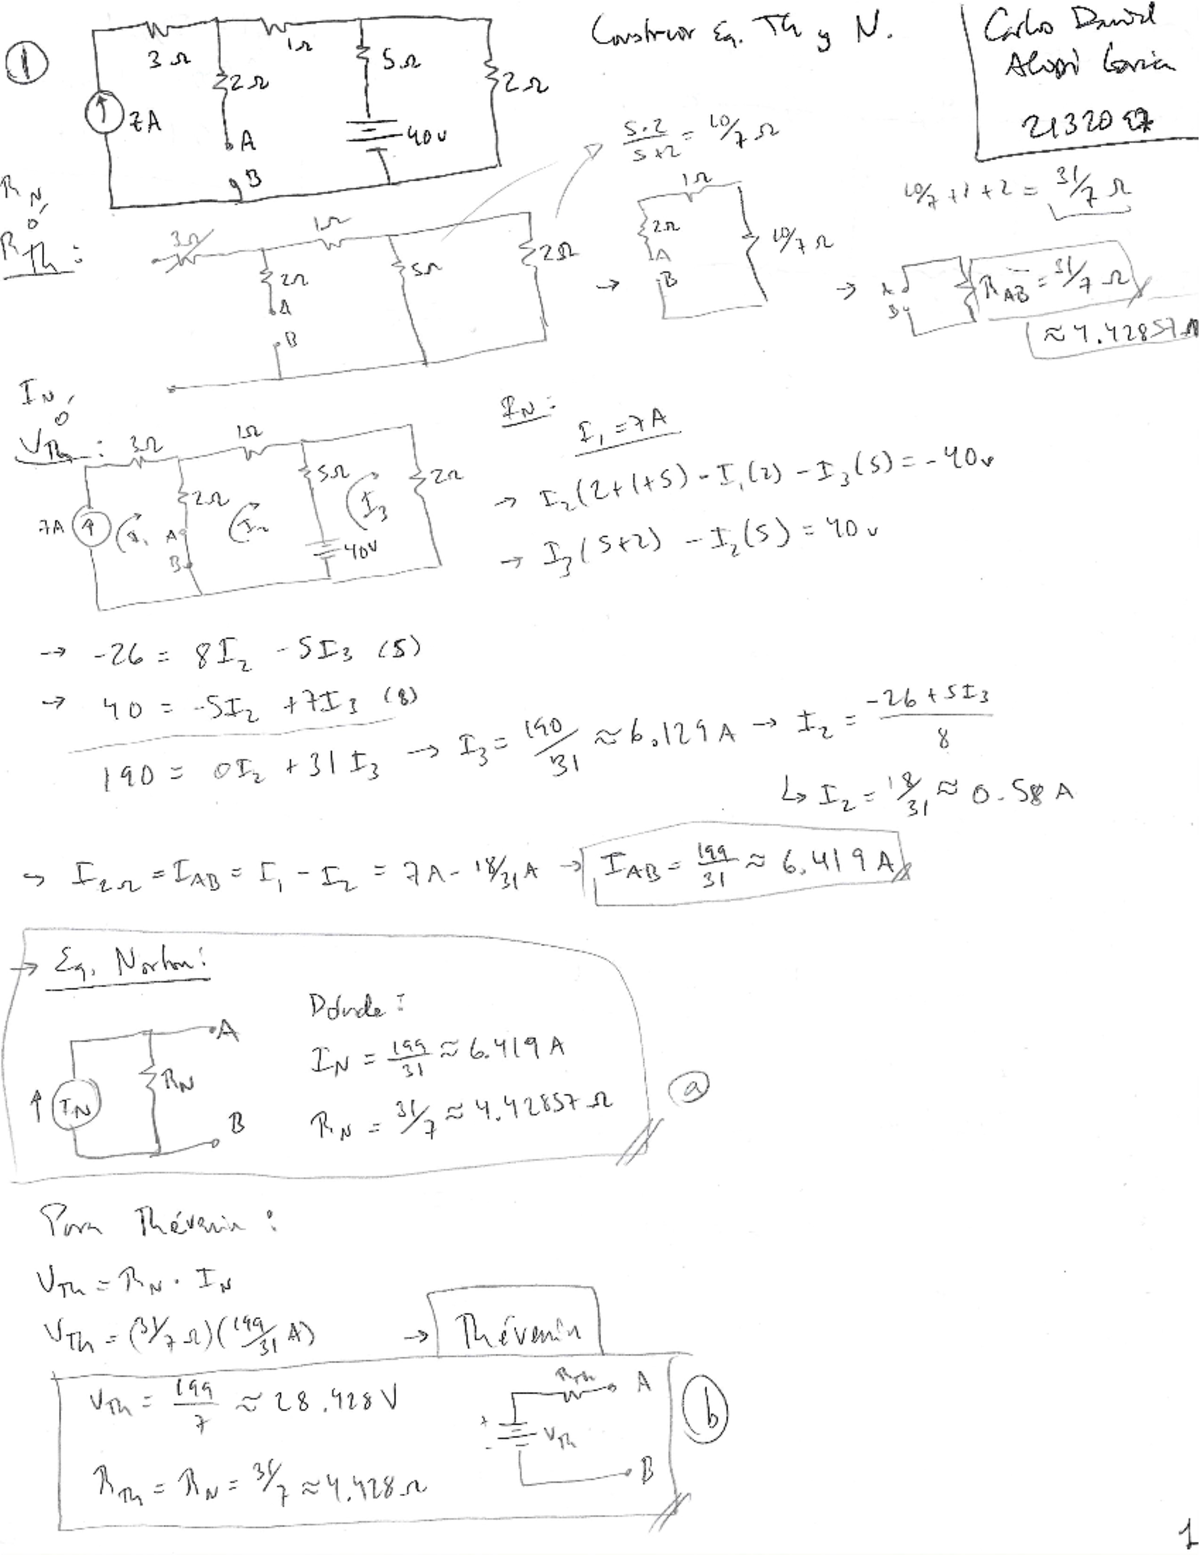 1
Construir Eq. Th y N.
Carlo Daniel
21320
3Ω 1Ω 5Ω 2Ω
2Ω
7A
A
B
40v
5·2/5+2 = 10/7 Ω
RN, o
RTh:
3Ω 1Ω
2Ω 5Ω 2Ω
A
B
→ 1Ω
2Ω 10/7 Ω
A
B
10/7 + 1 + 2 = 31/7 Ω
→ A
B
RAB = 31/7 Ω
≈ 4.42857 Ω
IN, o
VTh:
3Ω 1Ω
2Ω 5Ω 2Ω
7A I1 A I2 I3
B 40V
IN:
I1 = 7A
→ I2(2+1+5) - I1(2) - I3(5) = -40v
→ I3(5+2) - I2(5) = 40v
→ -26 = 8I2 - 5I3 (5)
→ 40 = -5I2 + 7I3 (8)
190 = 0I2 + 31I3 → I3 = 190/31 ≈ 6.129A → I2 = -26+5I3/8
↳ I2 = 18/31 ≈ 0.58 A
→ I2Ω = IAB = I1 - I2 = 7A - 18/31 A → IAB = 199/31 ≈ 6.419 A
→ Eq. Norton:
Dónde:
A
IN RN
B
IN = 199/31 ≈ 6.419 A
RN = 31/7 ≈ 4.42857 Ω
a
Para Thévenin:
VTh = RN · IN
VTh = (31/7 Ω)(199/31 A) → Thévenin
VTh = 199/7 ≈ 28.428 V
RTh = RN = 31/7 ≈ 4.428 Ω
RTh A
+
- VTh
B
b
1